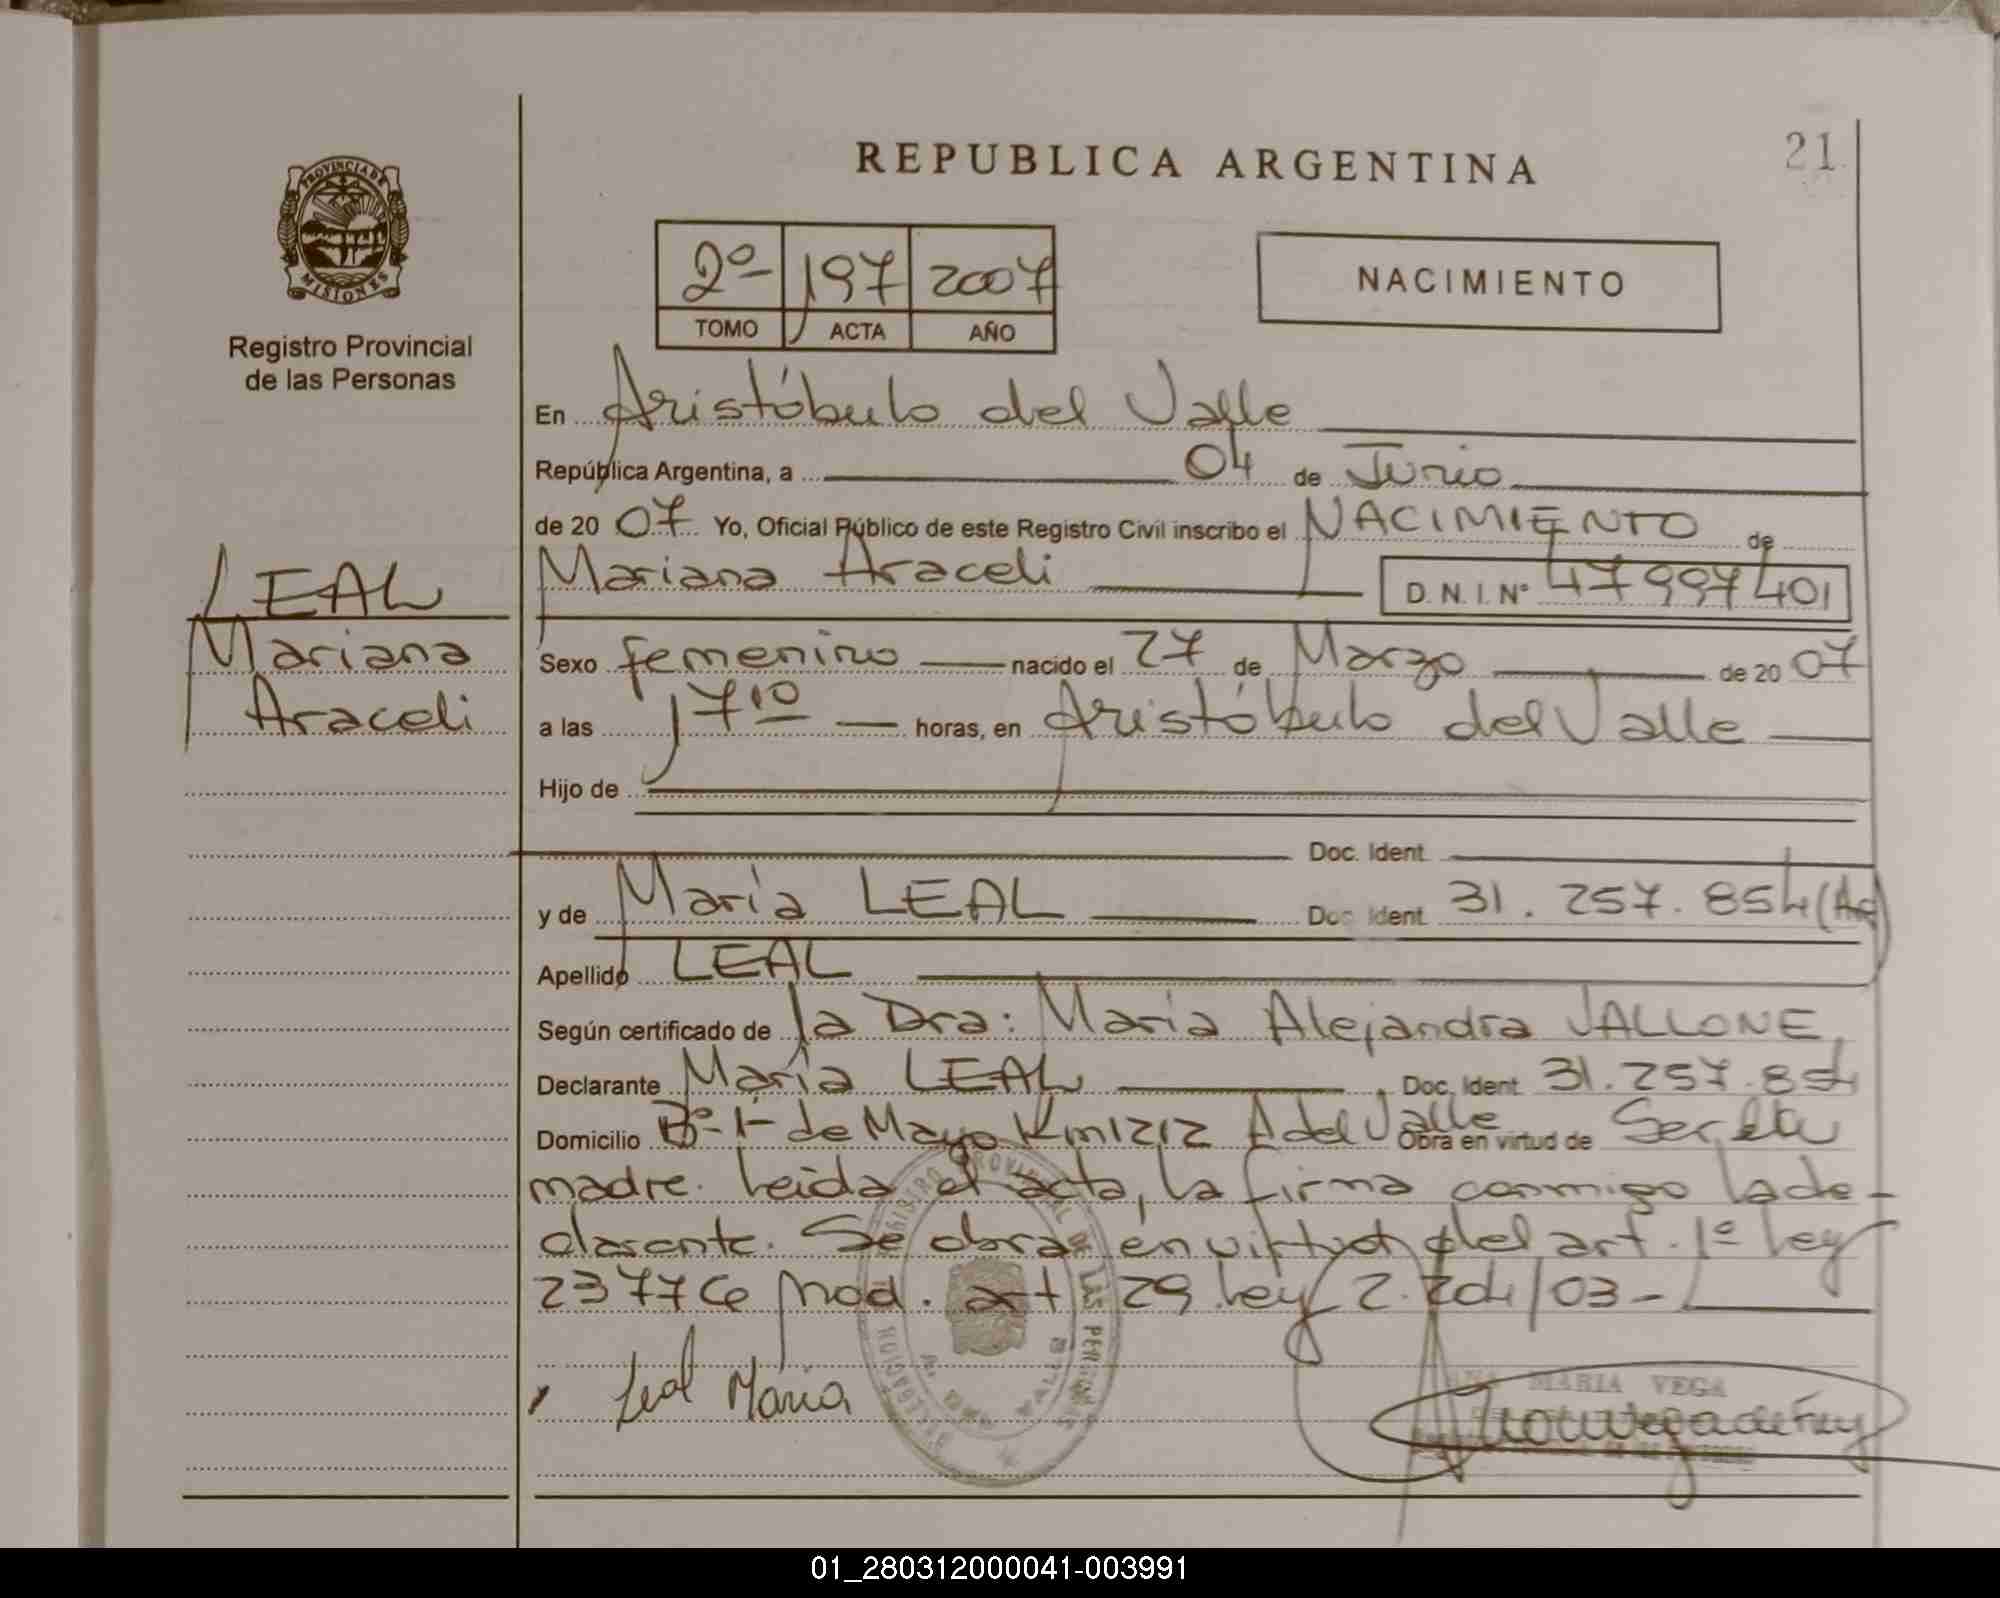 REPUBLICA ARGENTINA
21
PROVINCIA DE MISIONES
Registro Provincial
de las Personas
2º 197 2007
TOMO ACTA AÑO
NACIMIENTO
En Aristóbulo del Valle
República Argentina, a 04 de Junio
de 2007 Yo, Oficial Público de este Registro Civil inscribo el NACIMIENTO de
Mariana Araceli D.N.I.Nº 47997401
LEAL
Mariana
Araceli
Sexo femenino nacido el 27 de Marzo de 2007
a las 17 10 horas, en Aristóbulo del Valle
Hijo de
Doc. Ident.
y de María LEAL Doc. Ident. 31.257.854 (Ar)
Apellido LEAL
Según certificado de la Dra: María Alejandra VALLONE
Declarante María LEAL Doc. Ident. 31.257.854
Domicilio Bº 1º de Mayo Km 1212 A del Valle Obra en virtud de Ser la
madre. Leida el acta, la firma conmigo la de-
clarante. Se obra en virtud del art. 1º Ley
23776 Mod. art 29 ley 2.204/03-
Leal Maria
REGISTRO PROVINCIAL DE LAS PERSONAS
DELEGACION
MARIA VEGA
01_280312000041-003991